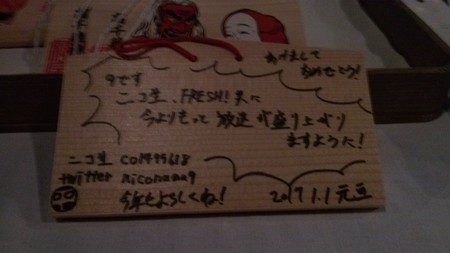 あけまして
おめでとう!
9です
ニコ生、FRESH!共に
今よりもって放送が盛り上がり
ますように!
ニコ生 co1499618
twitter niconama9
今年もよろしくね!
2017.1.1 元旦